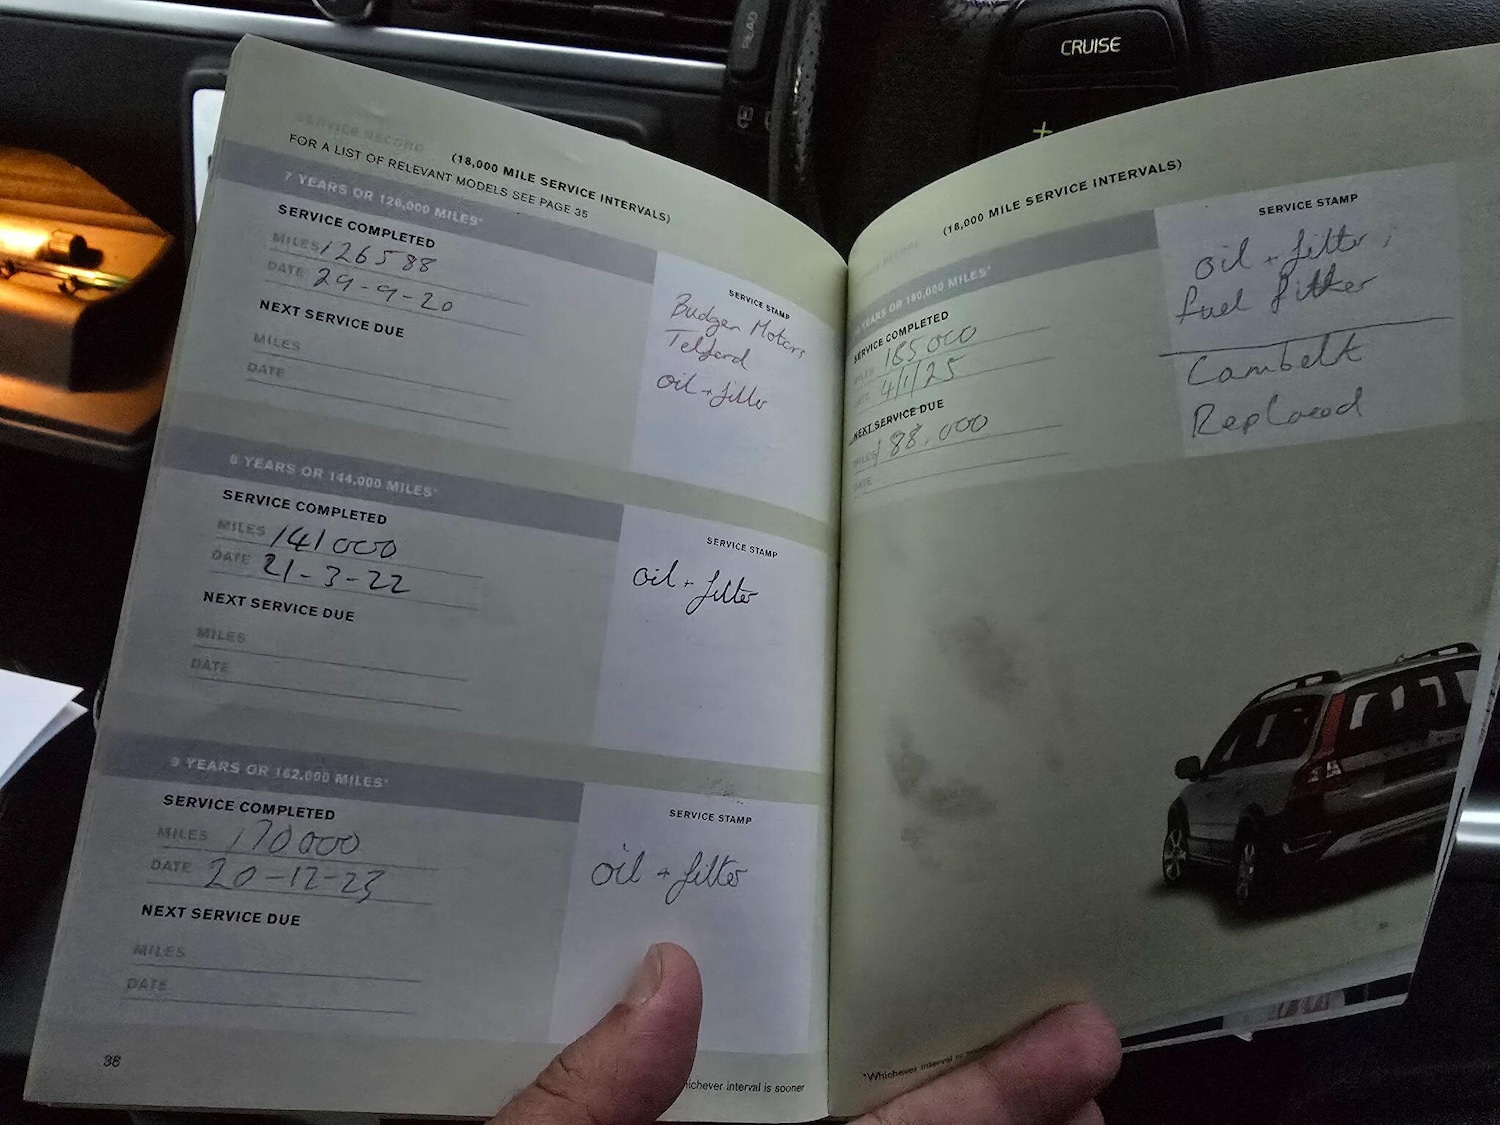 CRUISE
+
READ
SERVICE RECORD
(18,000 MILE SERVICE INTERVALS)
FOR A LIST OF RELEVANT MODELS SEE PAGE 35
7 YEARS OR 126,000 MILES*
SERVICE COMPLETED
MILES 126588
DATE 29-9-20
NEXT SERVICE DUE
MILES
DATE
SERVICE STAMP
Budgen Motors
Telford
oil + filter
8 YEARS OR 144,000 MILES*
SERVICE COMPLETED
MILES 141000
DATE 21-3-22
NEXT SERVICE DUE
MILES
DATE
SERVICE STAMP
oil + filter
9 YEARS OR 162,000 MILES*
SERVICE COMPLETED
MILES 170000
DATE 20-12-23
NEXT SERVICE DUE
MILES
DATE
SERVICE STAMP
oil + filter
38
whichever interval is sooner
(18,000 MILE SERVICE INTERVALS)
YEARS OR 180,000 MILES*
SERVICE COMPLETED
MILES 185000
DATE 4/1/25
NEXT SERVICE DUE
MILES 188,000
DATE
SERVICE STAMP
oil + filter,
fuel filter
Cambelt
Replaced
*Whichever interval is